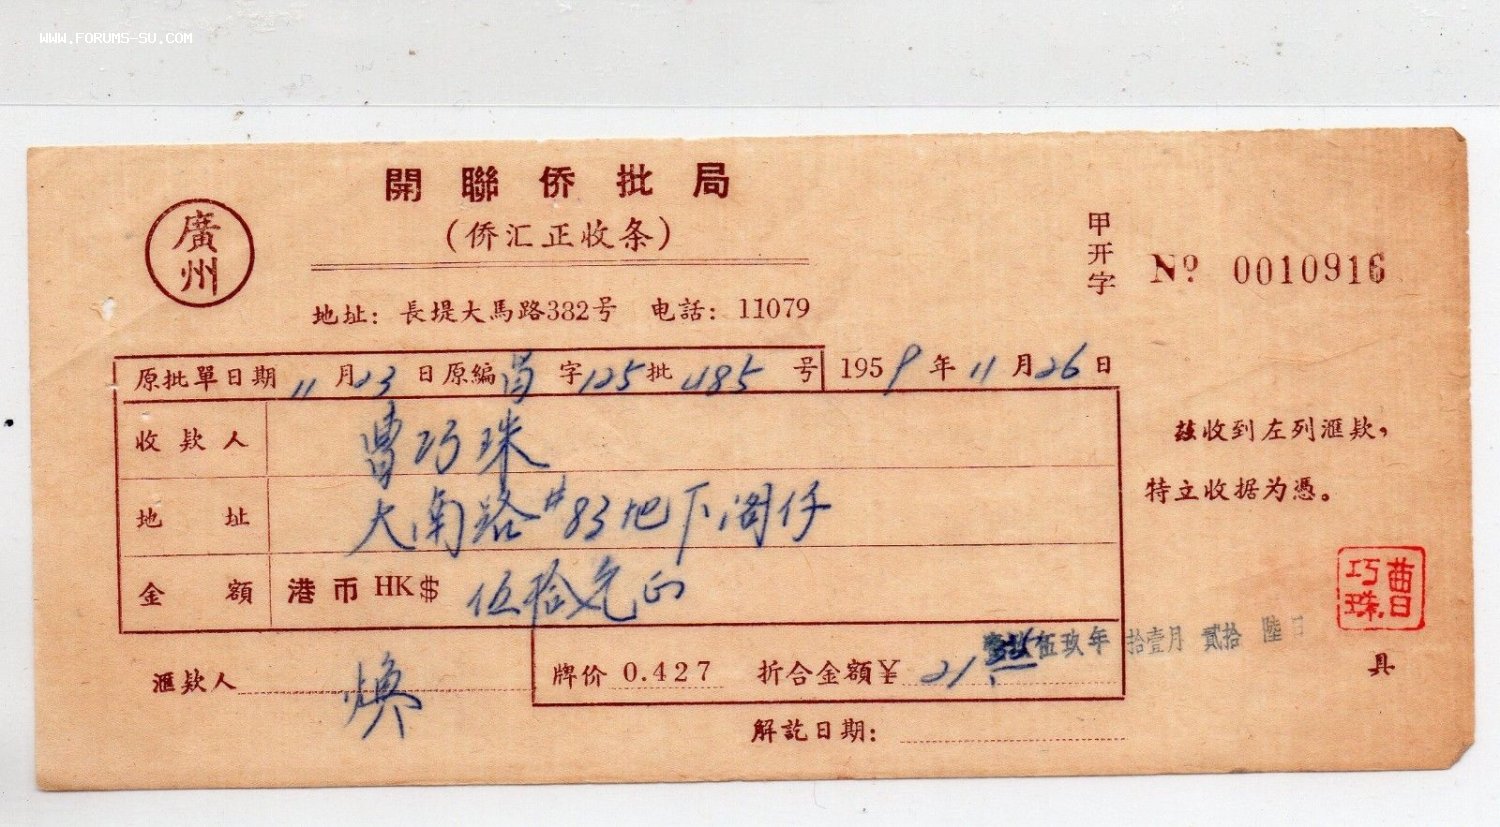 WWW.FORUMS-SU.COM
開聯侨批局
(侨汇正收条)
廣州
地址：長堤大馬路382号 电話：11079
甲开字
Nº 0010916
原批單日期 11 月 23 日原編 字 125 批 485 号
1959 年 11 月 26 日
收款人 曹巧珠
地址 大南路#83地下阁仔
金額 港币 HK$ 伍拾元正
兹收到左列滙款，
特立收据为憑。
曹巧珠
伍玖年 拾壹月 贰拾 陸日
具
滙款人 焕
牌价 0.427 折合金額¥ 21.35
解訖日期：